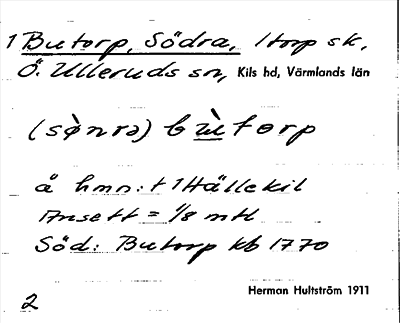 1 Butorp, Södra, 1 torp sk,
Ö. Ulleruds sn, Kils hd, Värmlands län
(sø̀nrə) bu̇̀torp
å hmn: t 1 Hällekil
Ansett = 1/8 mtl
Söd: Butorp kb 1770
Herman Hultström 1911
2